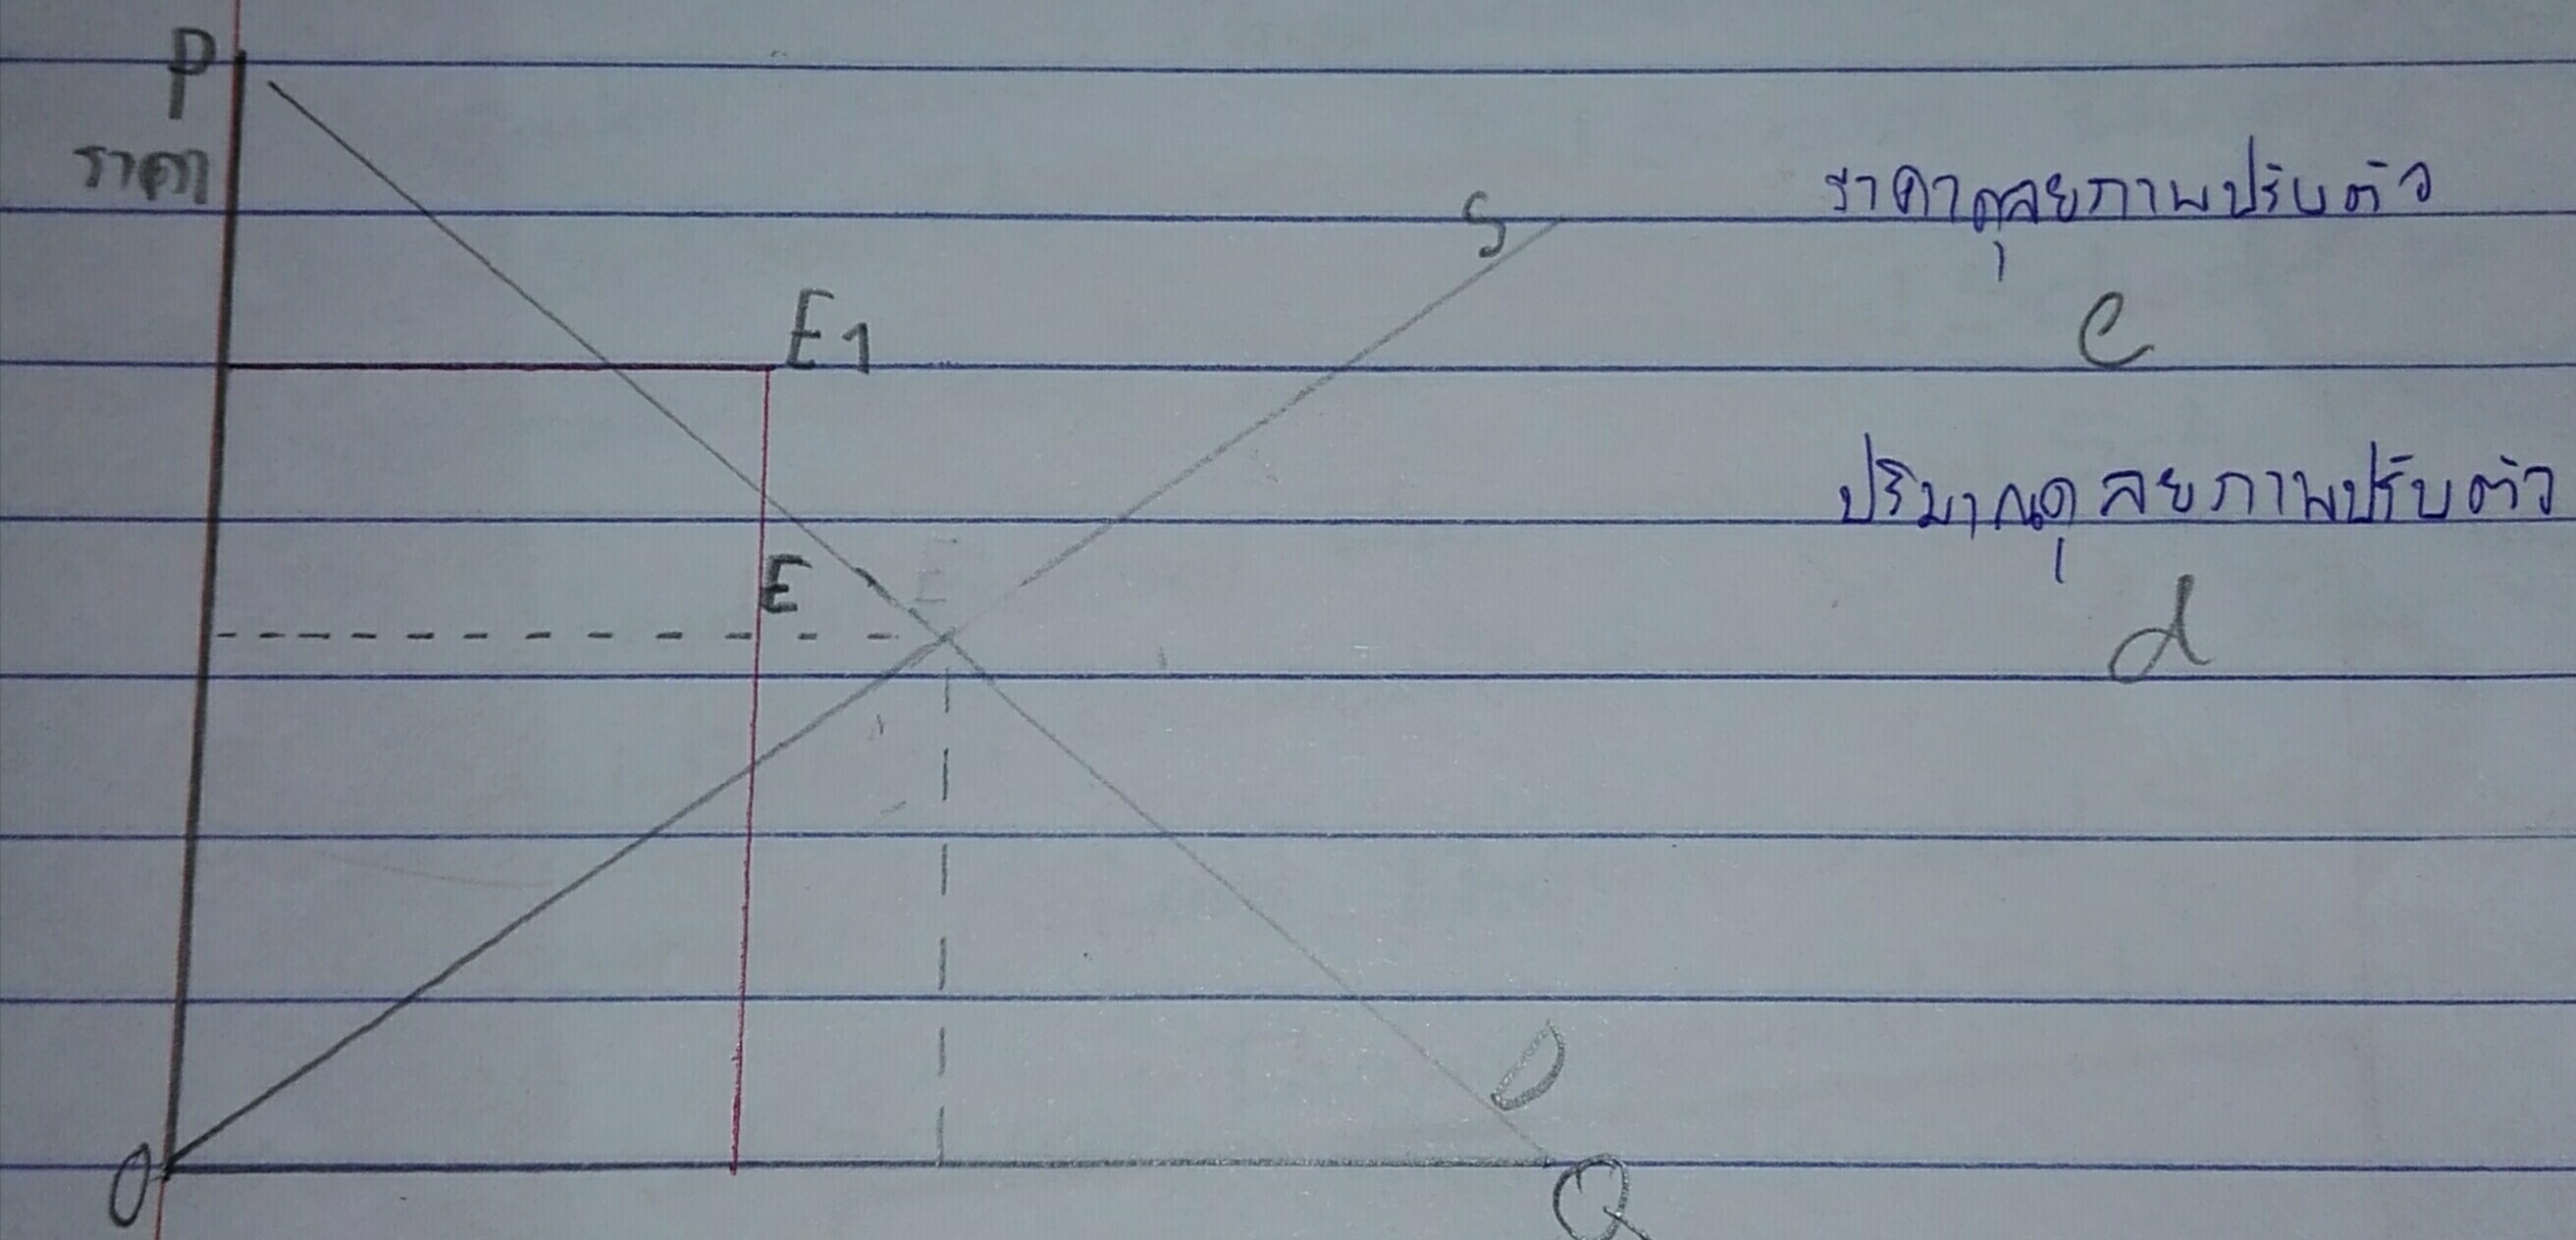 P
ราคา
S
ราคาดุลยภาพปรับตัว
E1
e
ปริมาณดุลยภาพปรับตัว
E
E
d
D
O
Q